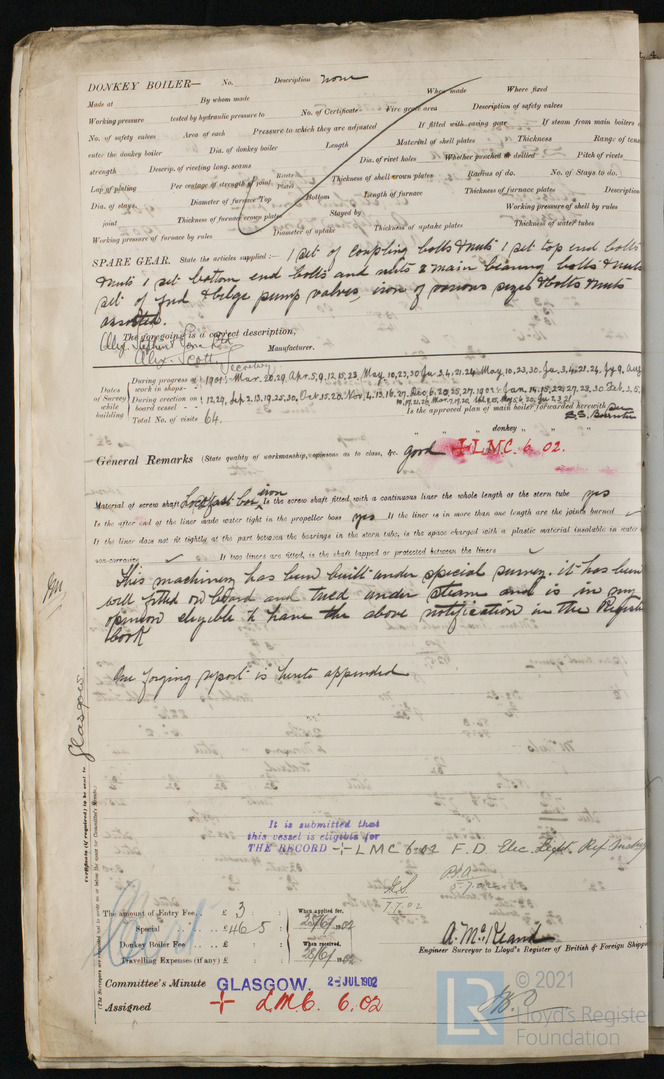 DONKEY BOILER— No. Description none
Made at By whom made When made Where fixed
Working pressure tested by hydraulic pressure to No. of Certificate Fire grate area Description of safety valves
No. of safety valves Area of each Pressure to which they are adjusted If fitted with easing gear If steam from main boilers
enter the donkey boiler Dia. of donkey boiler Length Material of shell plates Thickness Range of tens
strength Descrip. of riveting long. seams Dia. of rivet holes Whether punched or drilled Pitch of rivets
Lap of plating Per centage of strength of joint Rivets Plates Thickness of shell crown plates Radius of do. No. of Stays to do.
Dia. of stays Diameter of furnace Top Bottom Length of furnace Thickness of furnace plates Description
joint Thickness of furnace crown plates Stayed by Working pressure of shell by rules
Working pressure of furnace by rules Diameter of uptake Thickness of uptake plates Thickness of water tubes
SPARE GEAR. State the articles supplied:— 1 set of coupling bolts & nuts 1 set top end bolts
& nuts 1 set bottom end bolts and nuts 2 main bearing bolts & nuts
set of feed & bilge pump valves, iron of various sizes & bolts & nuts
assorted.
The foregoing is a correct description,
Alex. Scott, Secretary Manufacturer.
Dates of Survey while building
During progress of work in shops - - 1901: Mar. 20, 29, Apr. 5, 9, 12, 15, 23, May 10, 23, 30
During erection on board vessel - - - 12, 29, Sep. 2, 13, 19, 25, 30, Oct. 15, 20, Nov. 4, 13, 16, 27, Dec. 6, 20, 25, 27, 1902: Jan. 14, 15, 22, 27, 28, 30 Feb. 3, 5,
Total No. of visits 64. Is the approved plan of main boiler forwarded herewith
" " " donkey " " "
General Remarks (State quality of workmanship, opinions as to class, &c. good + L.M.C. 6. 02.
Material of screw shaft iron Is the screw shaft fitted with a continuous liner the whole length of the stern tube yes
Is the after end of the liner made water tight in the propeller boss yes If the liner is in more than one length are the joints burned ✓
If the liner does not fit tightly at the part between the bearings in the stern tube, is the space charged with a plastic material insoluble in water
non-corrosive ✓ If two liners are fitted, is the shaft lapped or protected between the liners ✓
This machinery has been built under special survey. it has been
well fitted on board and tried under steam and is in my
opinion eligible to have the above notification in the Register
book
One forging report is hereto appended
Glasgow
Certificate (if required) to be sent to
(The Surveyors are requested not to write on or below the space for Committee's Minute.)
It is submitted that
this vessel is eligible for
THE RECORD + LMC 6.02 F.D. Elec. Light.
7.7.02
The amount of Entry Fee . . £ 3 When applied for,
Special . . £ 46 5 25/6/1902
Donkey Boiler Fee . . . £ When received,
Travelling Expenses (if any) £ 1902
Engineer Surveyor to Lloyd's Register of British & Foreign Shipp
Committee's Minute GLASGOW. 2- JUL 1902
Assigned + L.M.C. 6.02
LR
© 2021
Lloyd's Register
Foundation